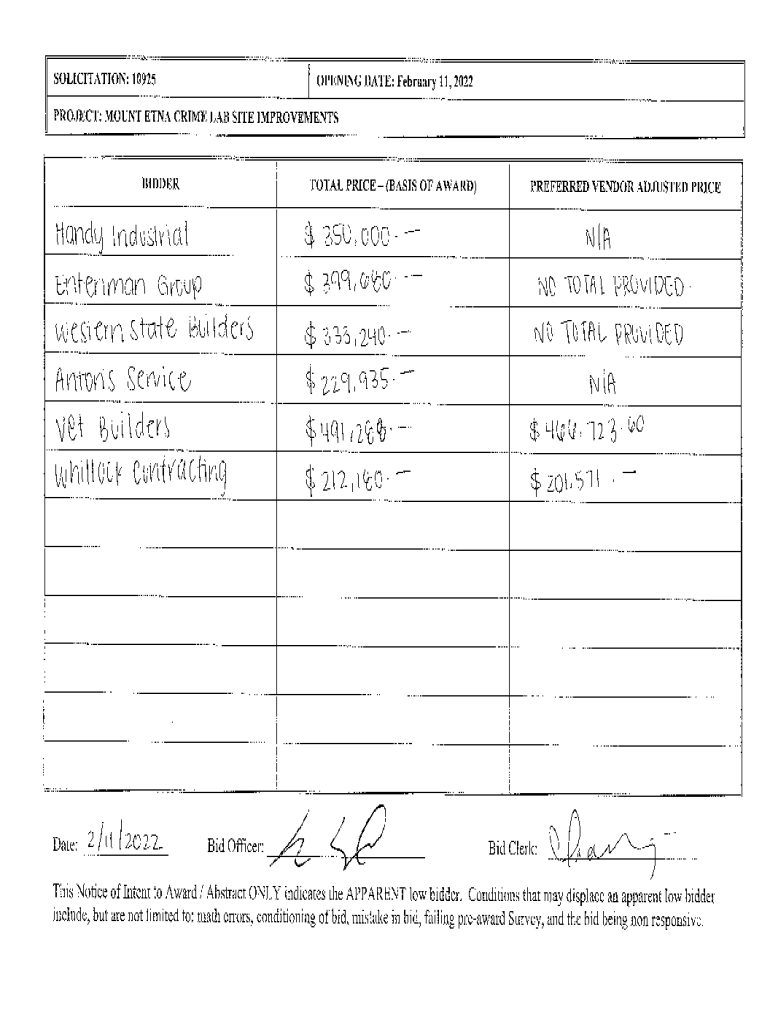 SOLICITATION: 10925
OPENING DATE: February 11, 2022
PROJECT: MOUNT ETNA CRIME LAB SITE IMPROVEMENTS
BIDDER TOTAL PRICE – (BASIS OF AWARD) PREFERRED VENDOR ADJUSTED PRICE
Handy Industrial $ 350,000.— N/A
Enteriman Group $ 399,080.— NO TOTAL PROVIDED.
Western State Builders $ 333,240.— NO TOTAL PROVIDED
Anton's Service $ 229,935.— N/A
Vet Builders $ 491,288.— $ 466.723.60
Whillock Contracting $ 212,180.— $ 201.571.—
Date: 2/11/2022 Bid Officer: Bid Clerk:
This Notice of Intent to Award / Abstract ONLY indicates the APPARENT low bidder. Conditions that may displace an apparent low bidder
include, but are not limited to: math errors, conditioning of bid, mistake in bid, failing pre-award Survey, and the bid being non responsive.